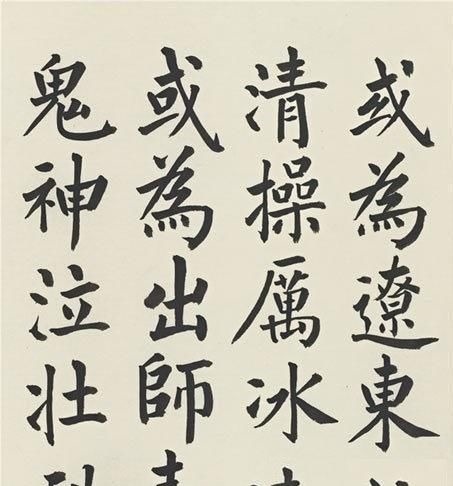 或為遼東
清操厲冰
或為出師
鬼神泣壯